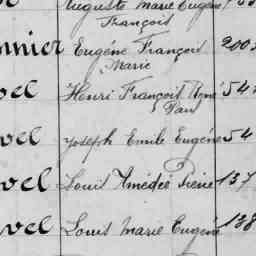 Auguste Marie Eugène
François
nnier Eugène François 200
Marie
vel Henri François Aimé 54
Paul
vel Joseph Emile Eugène 54
vel Louis Amédée Pierre 137
vel Louis Marie Eugène 138